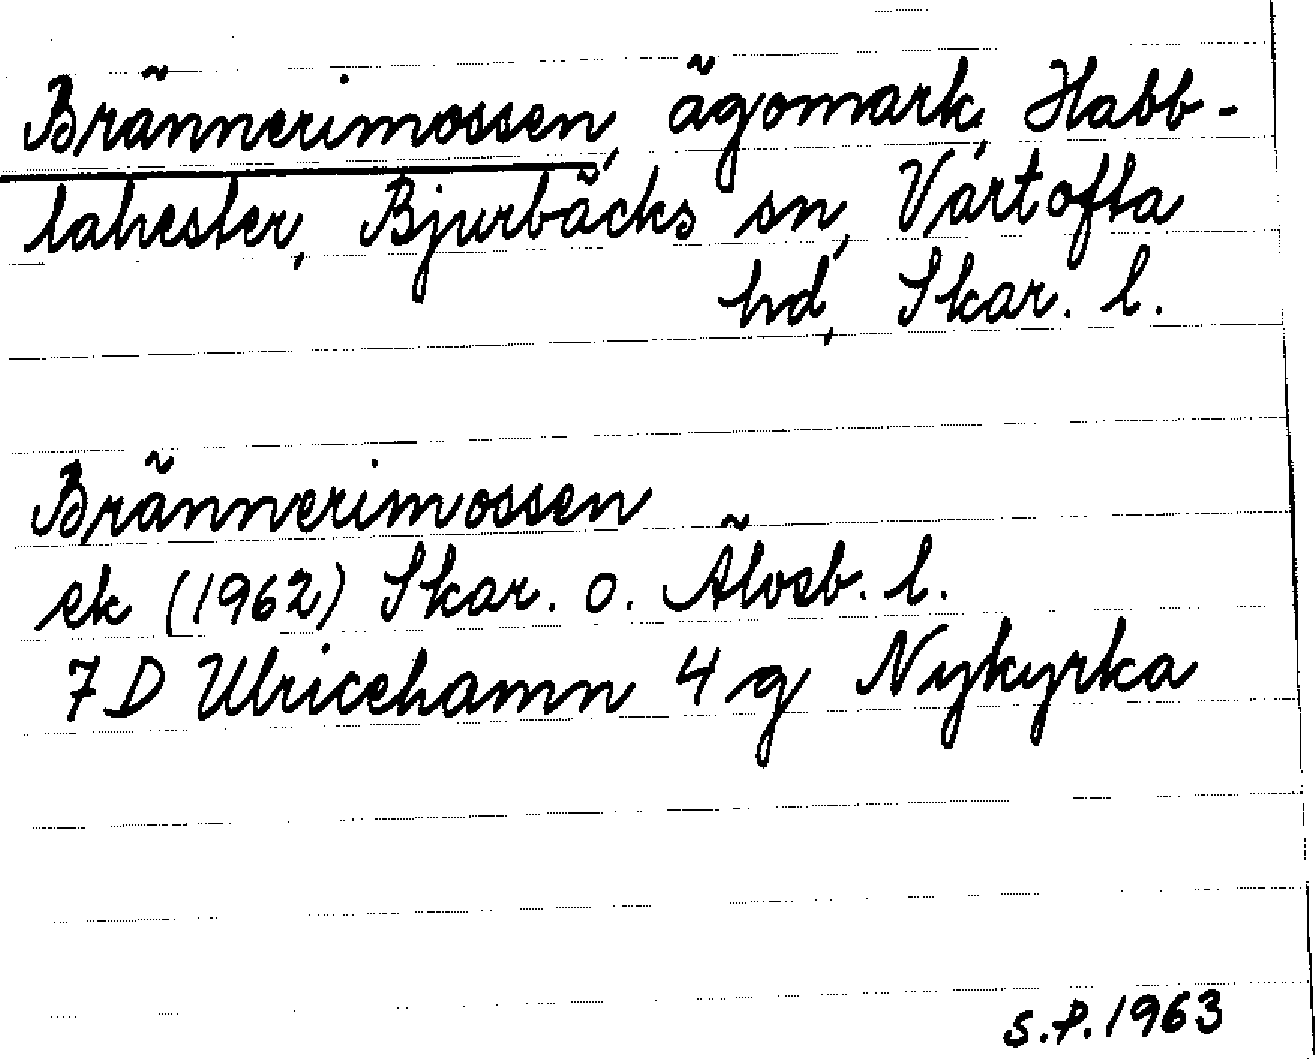 Brännerimossen, ägomark, Habb-
lahester, Bjurbäcks sn, Vartofta
hd, Skar. l.
Brännerimossen
ek (1962) Skar. o. Älvsb. l.
7D Ulricehamn 4 g Nykyrka
S.P. 1963